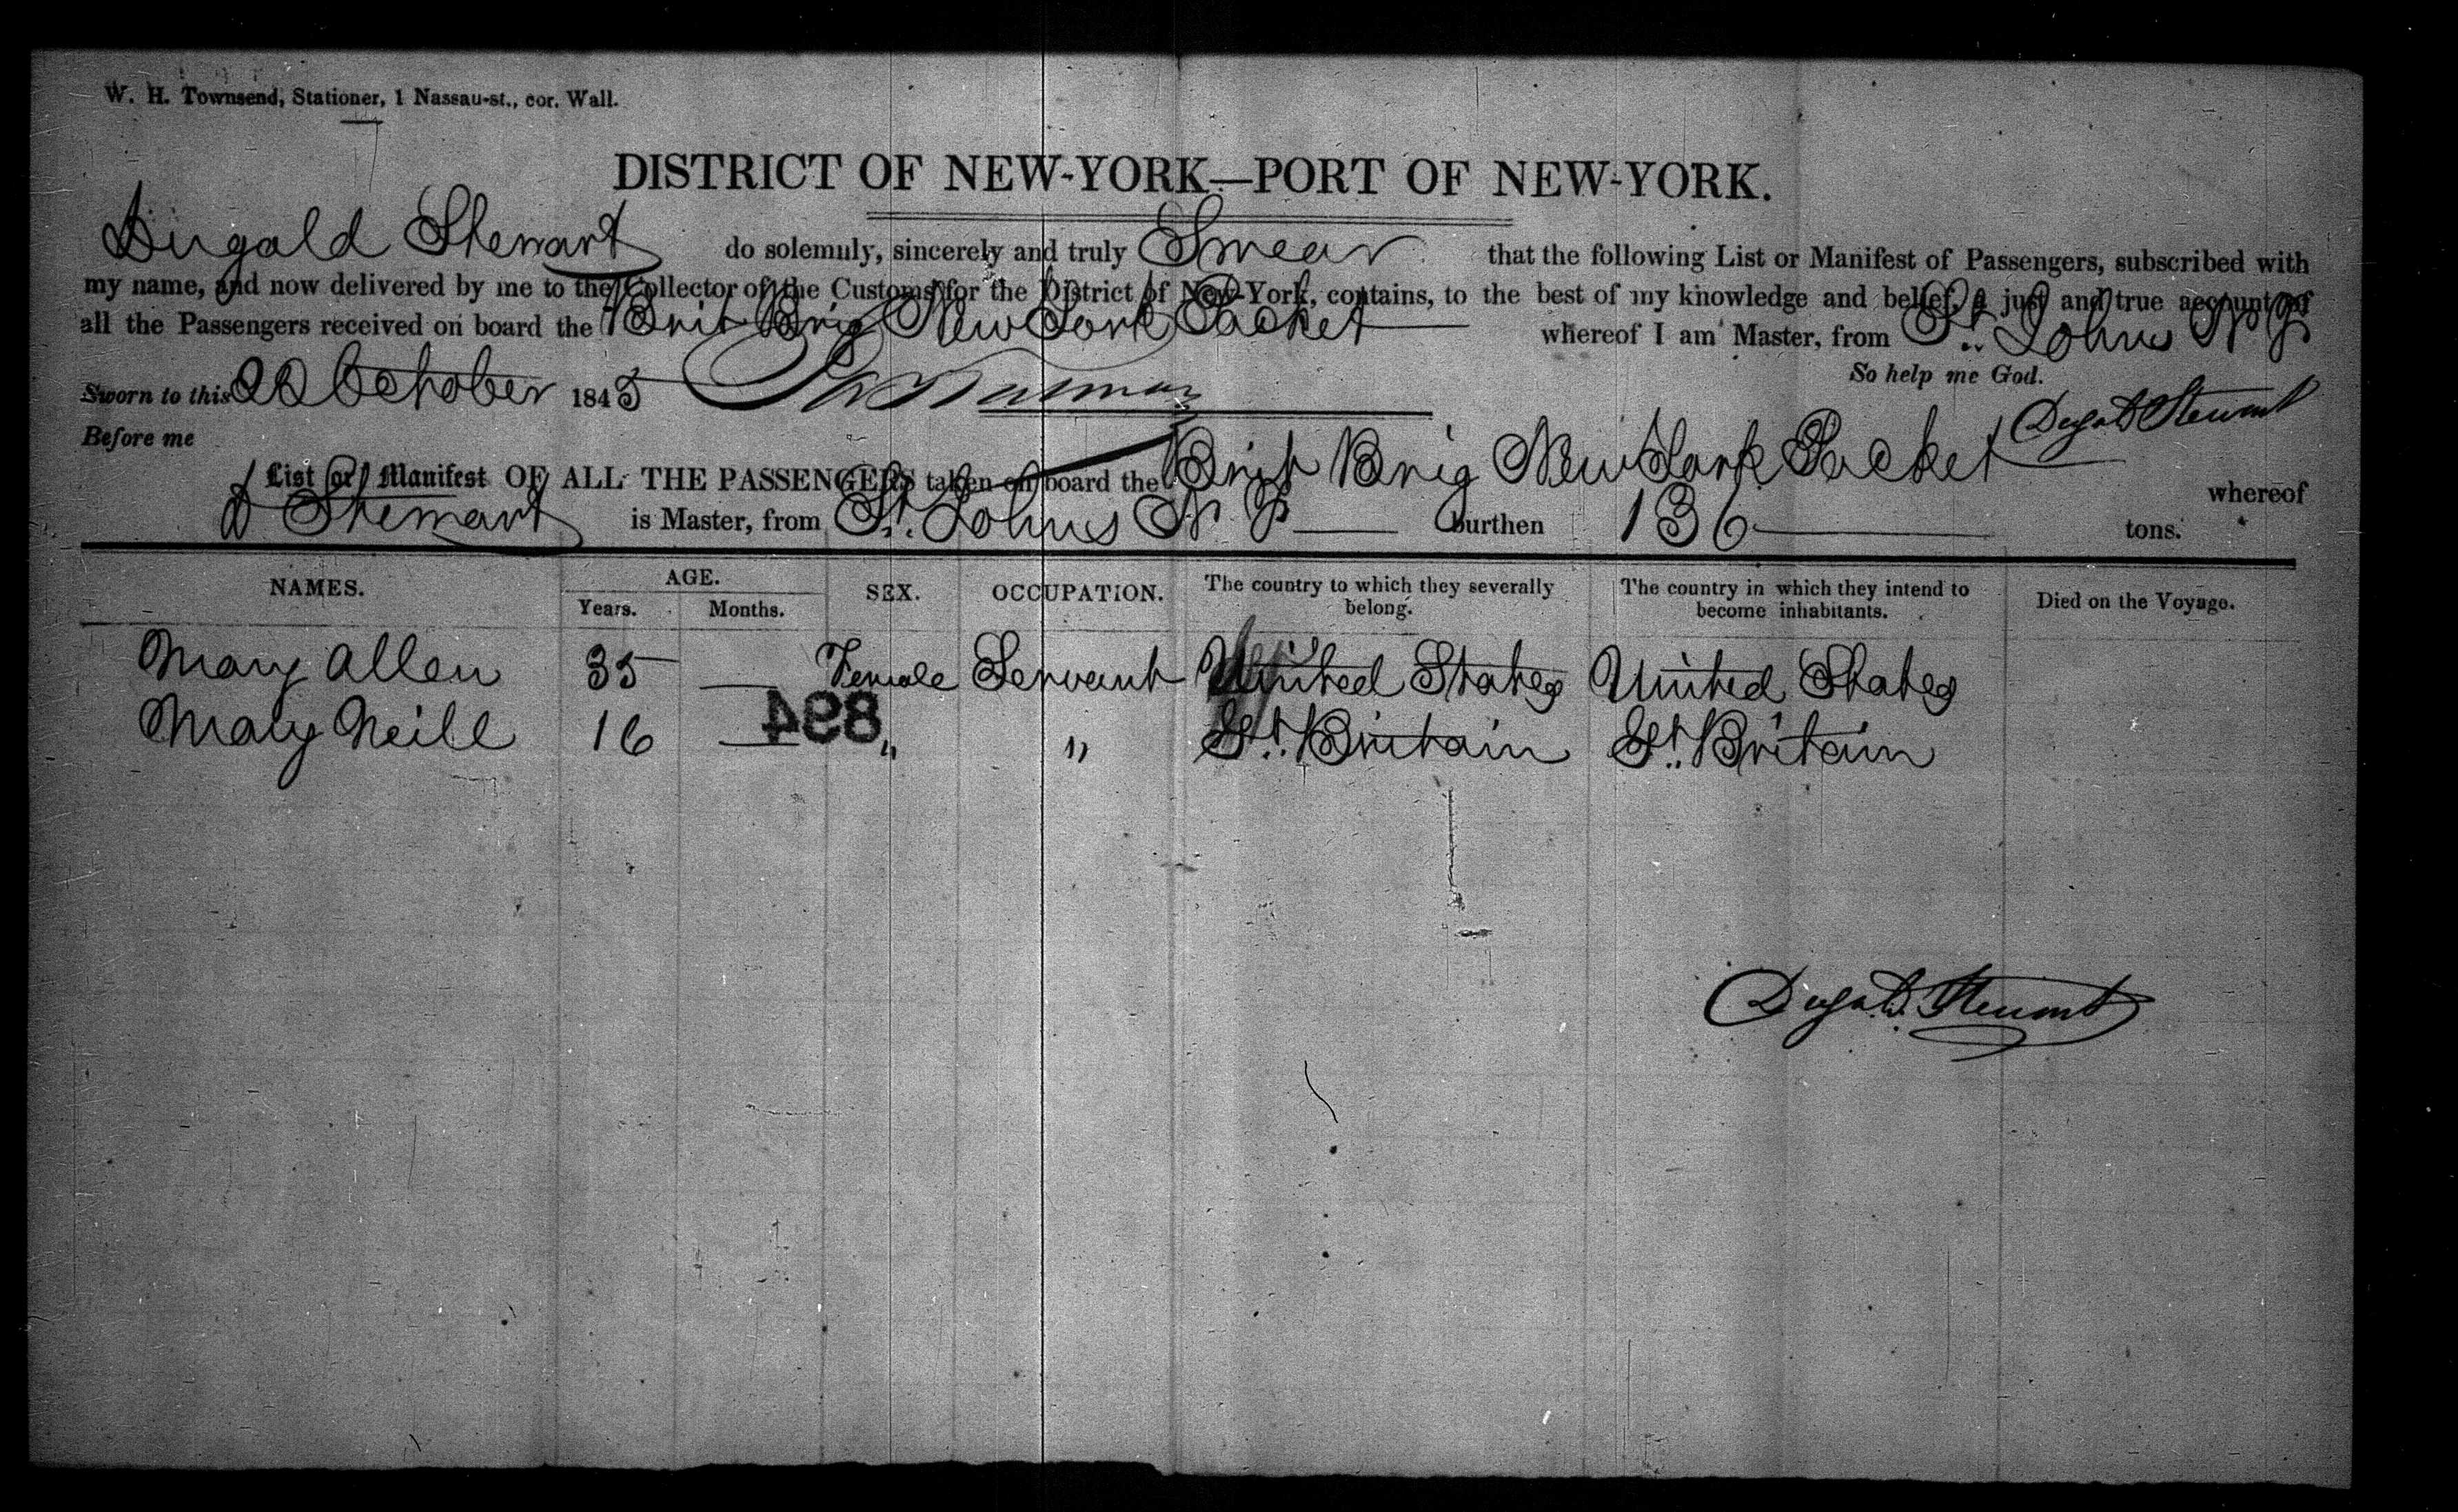 W. H. Townsend, Stationer, 1 Nassau-st., cor. Wall.
DISTRICT OF NEW-YORK—PORT OF NEW-YORK.
Dugald Stewart do solemnly, sincerely and truly Swear that the following List or Manifest of Passengers, subscribed with
my name, and now delivered by me to the Collector of the Customs for the District of New-York, contains, to the best of my knowledge and belief, a just and true account of
all the Passengers received on board the Brit Brig New York Packet whereof I am Master, from St. Johns N F
So help me God.
Sworn to this 22 October 1845
Dugald Stewart
Before me
List or Manifest OF ALL THE PASSENGERS taken on board the Brit Brig New York Packet whereof
D Stewart is Master, from St. Johns N F burthen 136 tons.
NAMES. AGE. SEX. OCCUPATION. The country to which they severally belong. The country in which they intend to become inhabitants. Died on the Voyage.
Years. Months.
Mary Allen 35 — Female Servant United States United States
894
Mary Neill 16 — " " Gt. Britain Gt. Britain
Dugald Stewart